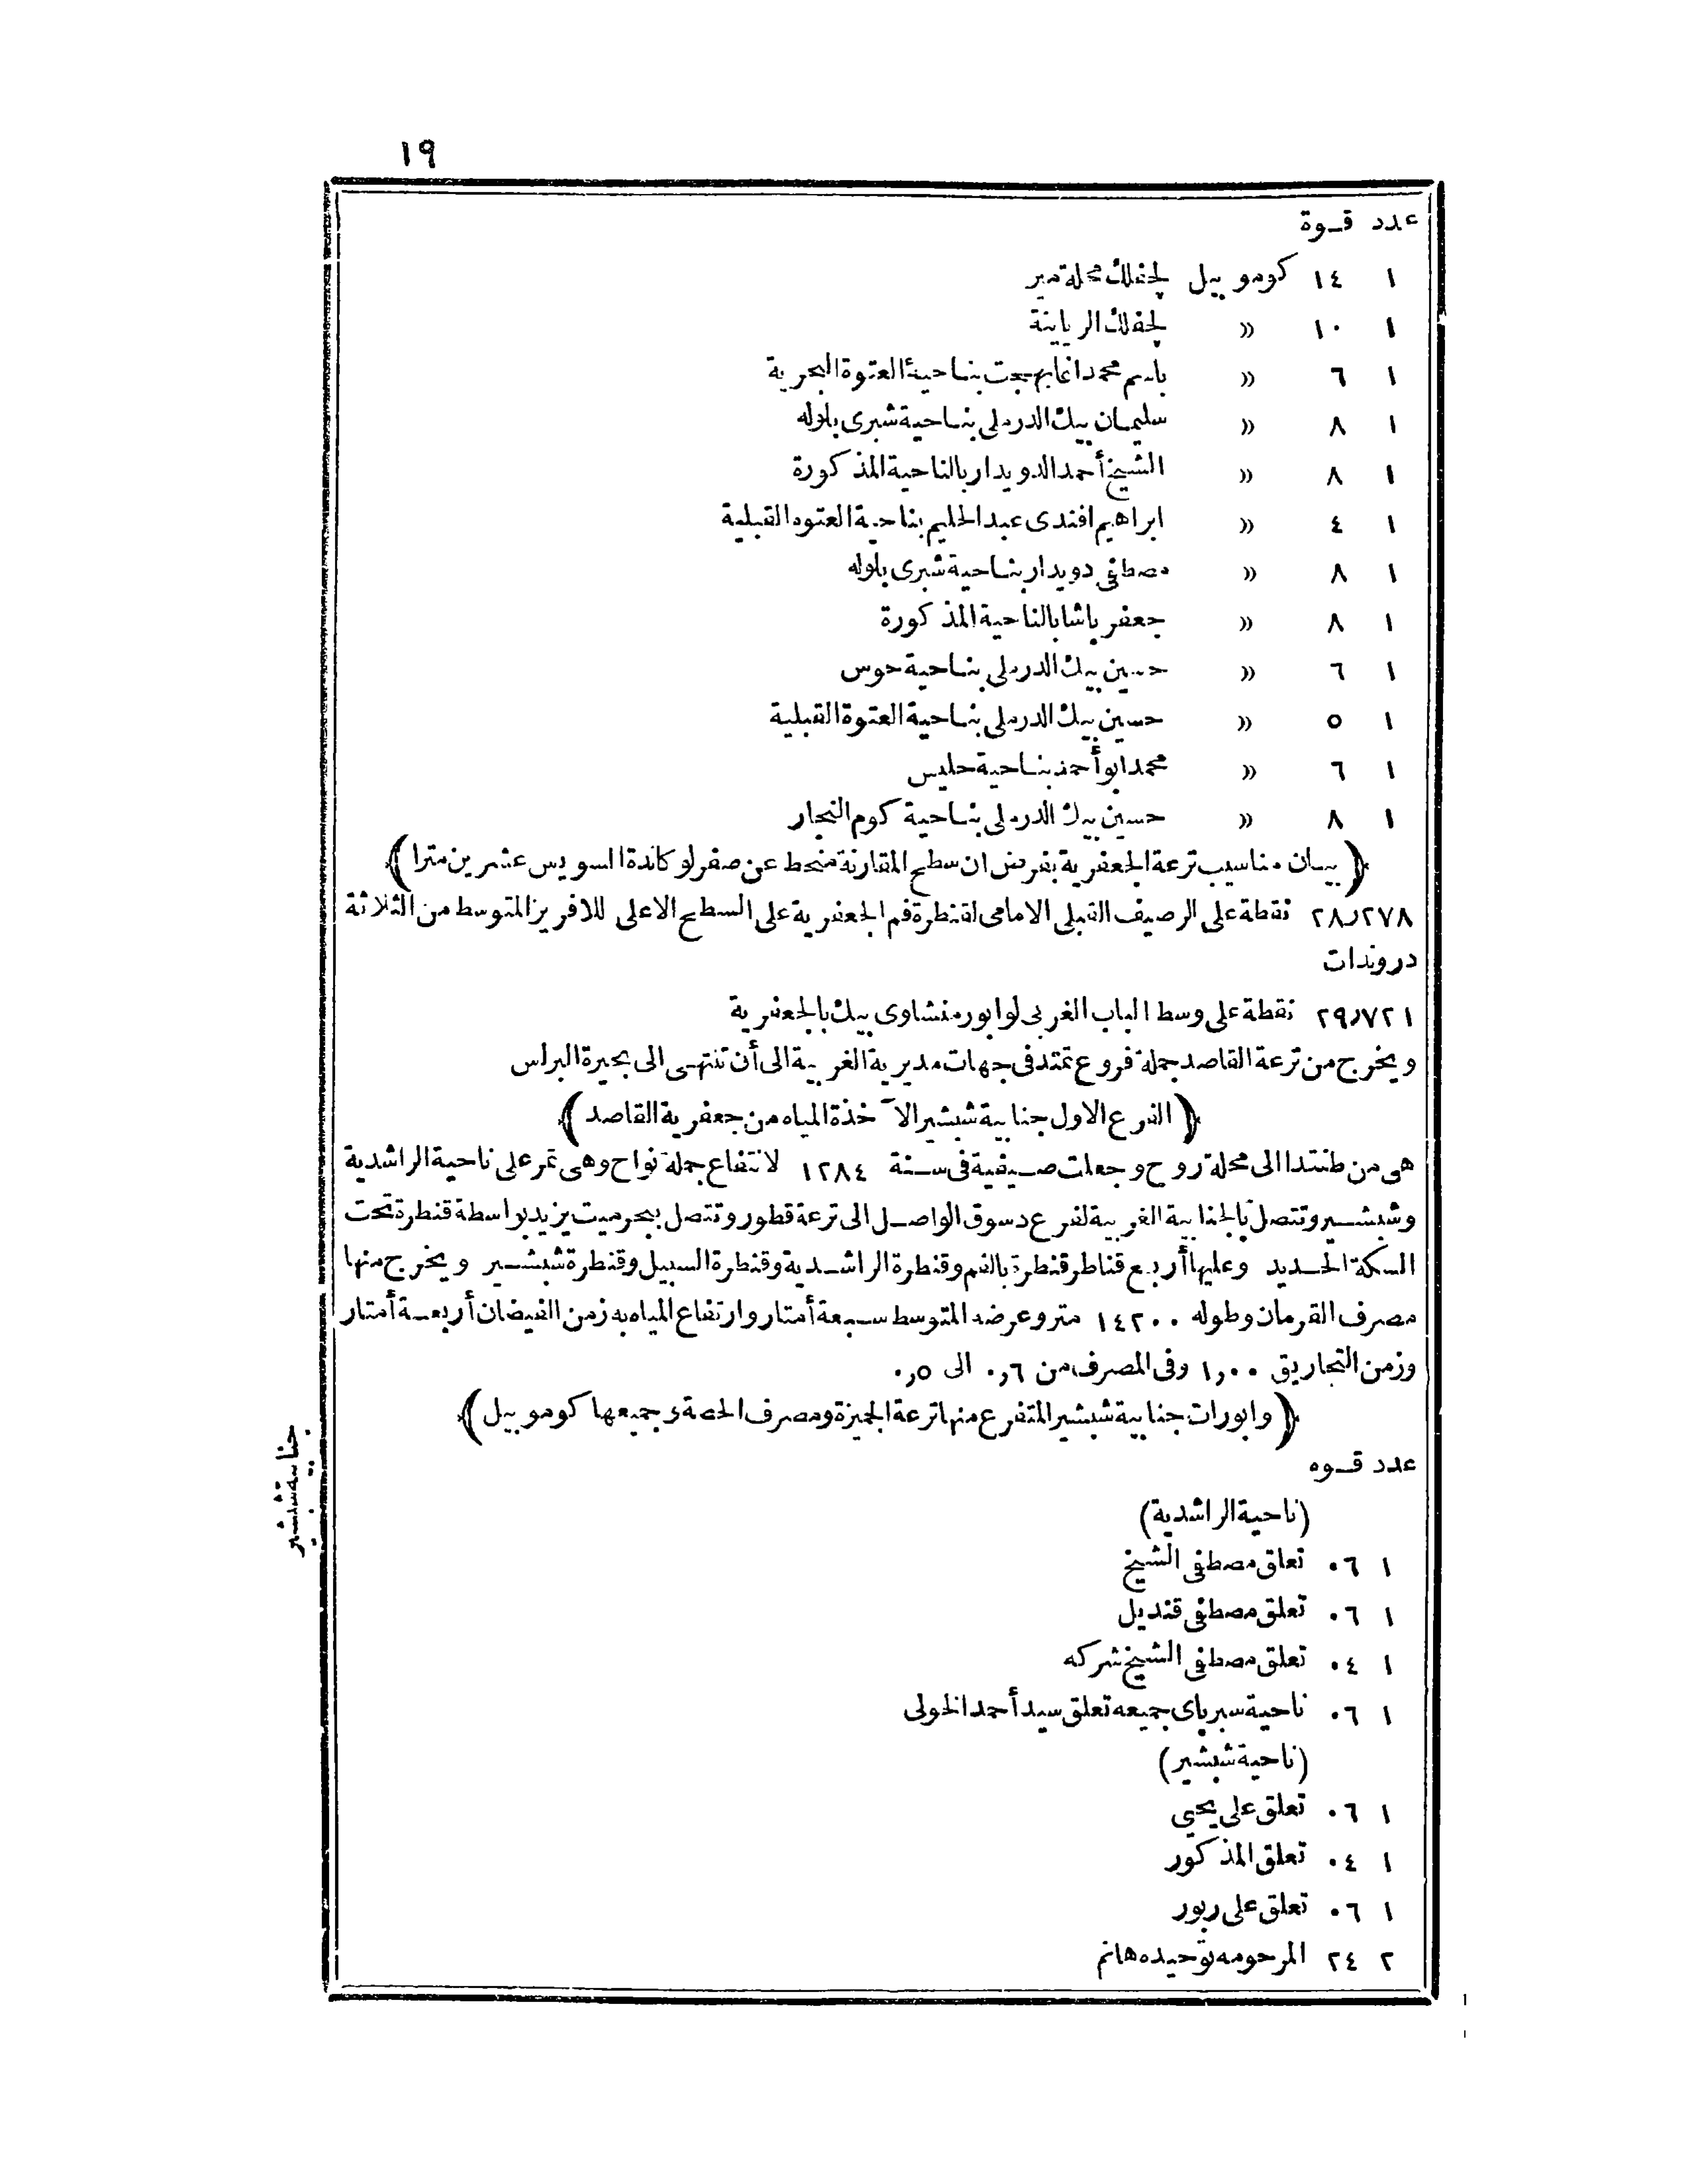 ١٩
عدد قوة
١ ١٤ كوموبيل لجفلك محلة منير
١ ١٠ » لجفلك الرياينة
١ ٦ » باسم محمد اغا بهجت بناحية العتوة البحرية
١ ٨ » سليمان بيك الدرملى بناحية شبرى بلوله
١ ٨ » الشيخ أحمد الدويدار بالناحية المذكورة
١ ٤ » ابراهيم افندى عبد الحليم بناحية العتوه القبلية
١ ٨ » مصطفى دويدار بناحية شبرى بلوله
١ ٨ » جعفر باشا بالناحية المذكورة
١ ٦ » حسين بيك الدرملى بناحية حوس
١ ٥ » حسين بيك الدرملى بناحية العتوة القبلية
١ ٦ » محمد ابو أحمد بناحية حليس
١ ٨ » حسين بيك الدرملى بناحية كوم النجار
﴿بيان مناسيب ترعة الجعفرية بفرض ان سطح المقارنة منحط عن صفر لوكاندة السويس عشرين مترا﴾
٢٨٫٢٧٨ نقطة على الرصيف القبلى الامامى لقنطرة فم الجعفرية على السطح الاعلى للافريز المتوسط من الثلاثة
دروندات
٢٩٫٧٢١ نقطة على وسط الباب الغربى لوابور منشاوى بيك بالجعفرية
ويخرج من ترعة القاصد جملة فروع تمتد فى جهات مديرية الغربية الى أن تنتهى الى بحيرة البراس
﴿الفرع الاول جنابية شبشير الآخذة المياه من جعفرية القاصد﴾
هى من طنتدا الى محلة روح وجعلت صيفية فى سنة ١٢٨٤ لانتفاع جملة نواح وهى تمر على ناحية الراشدية
وشبشير وتتصل بالجنابية الغربية لفرع دسوق الواصل الى ترعة قطور وتتصل ببحر ميت يزيد بواسطة قنطرة تحت
السكة الحديد وعليها أربع قناطر قنطرة بالفم وقنطرة الراشدية وقنطرة السبيل وقنطرة شبشير ويخرج منها
مصرف القرمان وطوله ١٤٢٠٠ متر وعرضه المتوسط سبعة أمتار وارتفاع المياه به زمن الفيضان أربعة أمتار
وزمن التحاريق ١٫٠٠ وفى المصرف من ٠٫٦ الى ٠٫٥
﴿وابورات جنابية شبشير المتفرع منها ترعة الجميزة ومصرف الحصة وجميعها كوموبيل﴾
جنابية شبشير
عدد قوه
(ناحية الراشدية)
١ ٠٦ تعلق مصطفى الشيخ
١ ٠٦ تعلق مصطفى قنديل
١ ٠٤ تعلق مصطفى الشيخ شركه
١ ٠٦ ناحية سبرباى جميعه تعلق سيد أحمد الخولى
(ناحية شبشير)
١ ٠٦ تعلق على يحيى
١ ٠٤ تعلق المذكور
١ ٠٦ تعلق على ربور
٢ ٢٤ المرحومه توحيده هانم